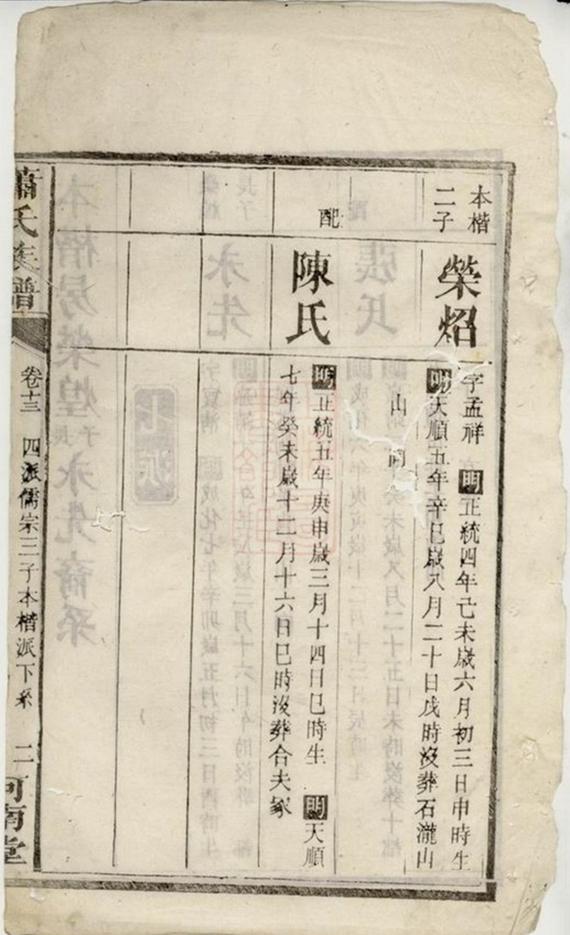 本楷
二子
榮炤
字孟祥 明正統四年己未歲六月初三日申時生
明天順五年辛巳歲八月二十日戌時沒葬石瀧山
山
配
陳氏
明正統五年庚申歲三月十四日巳時生 明天順
七年癸未歲十二月十六日巳時沒葬合夫冢
蕭氏族譜
卷十三 四派儒宗三子本楷派下系 二 河南堂